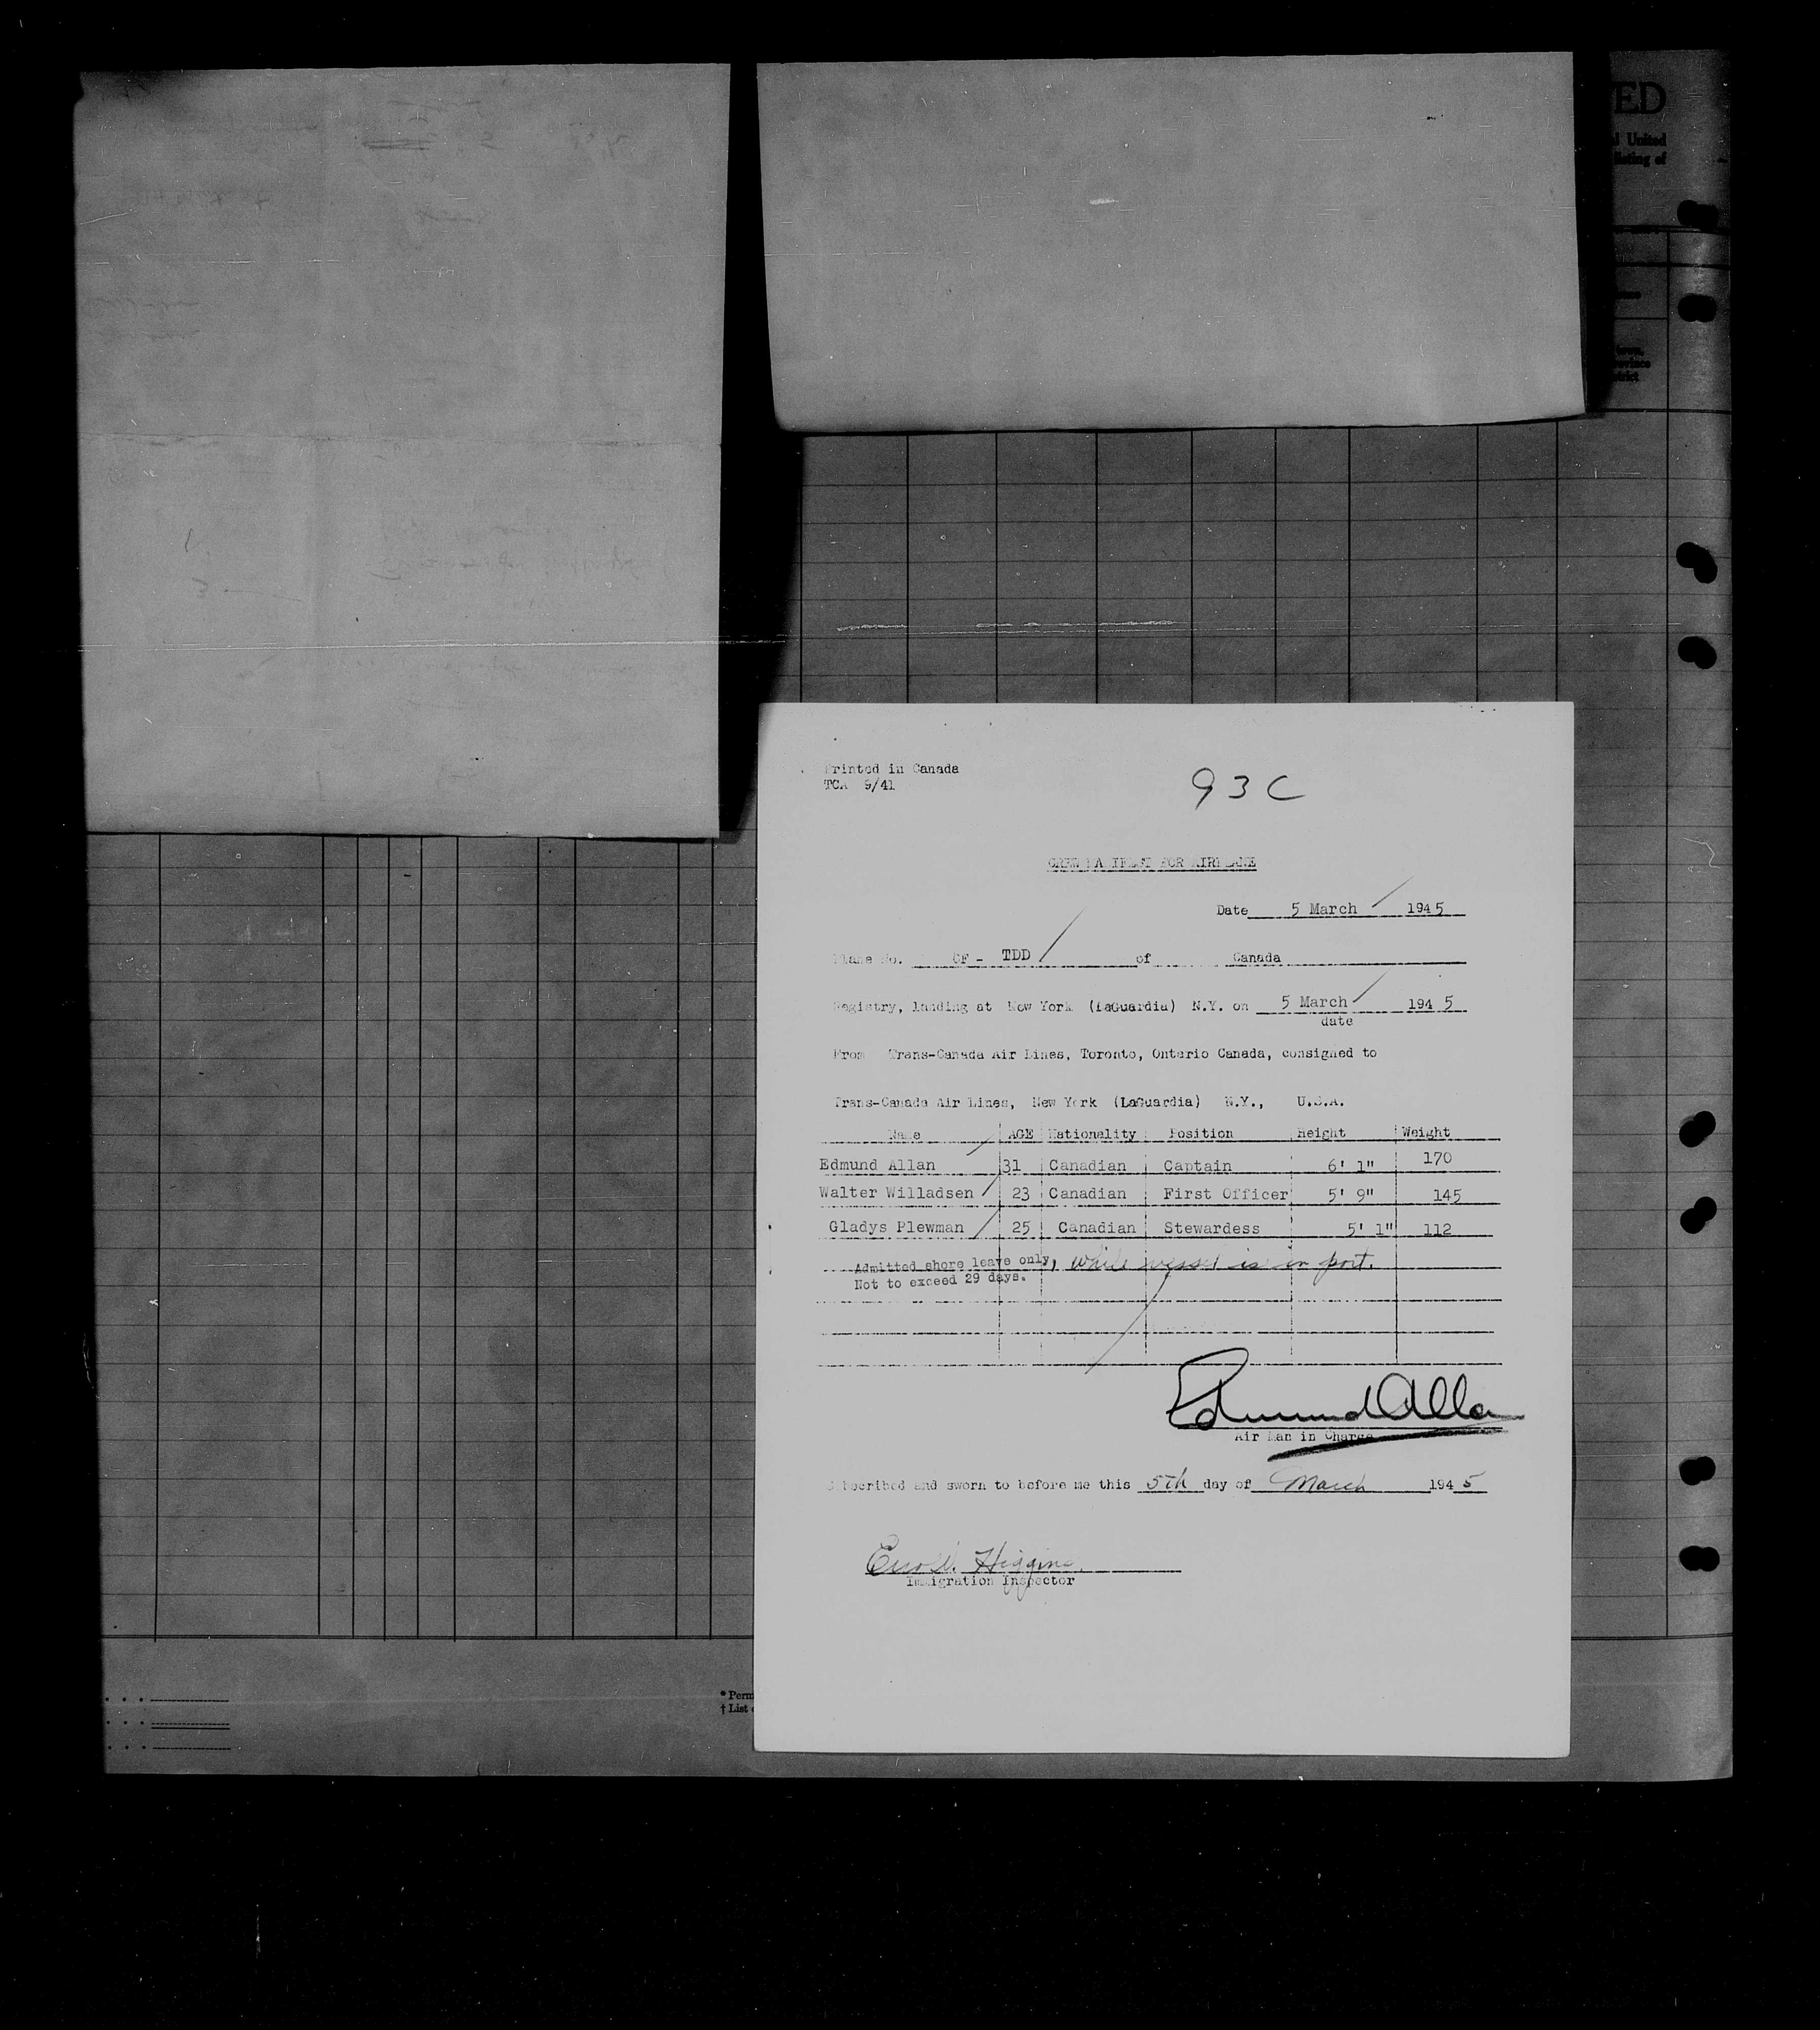 ED
United
listing of
Printed in Canada
TCA 9/41
93C
CREW MANIFEST FOR AIRPLANE
Date 5 March 1945
Plane No. CF - TDD of Canada
Registry, landing at New York (LaGuardia) N.Y. on 5 March 1945
date
From Trans-Canada Air Lines, Toronto, Ontario Canada, consigned to
Trans-Canada Air Lines, New York (LaGuardia) N.Y., U.S.A.
Name AGE Nationality Position Height Weight
Edmund Allan 31 Canadian Captain 6' 1" 170
Walter Willadsen 23 Canadian First Officer 5' 9" 145
Gladys Plewman 25 Canadian Stewardess 5' 1" 112
Admitted shore leave only, while vessel is in port.
Not to exceed 29 days.
Edmund Allan
Air Man in Charge
Subscribed and sworn to before me this 5th day of March 1945
Higgins
Immigration Inspector
* Perm
† List